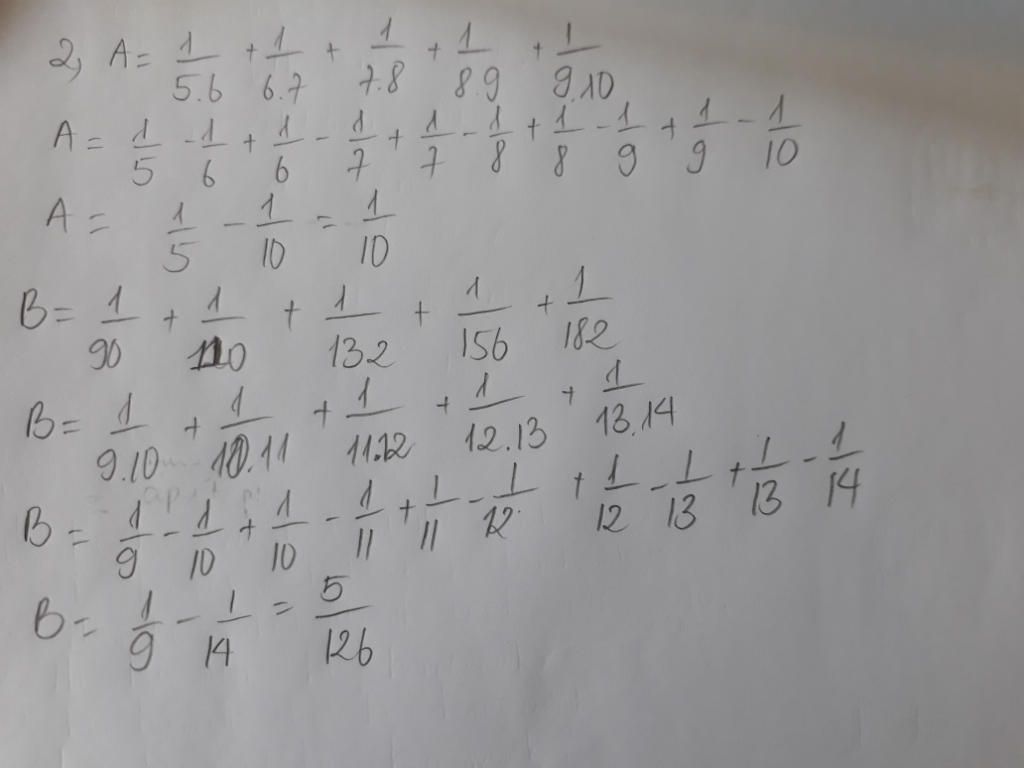 2, A = 1/5.6 + 1/6.7 + 1/7.8 + 1/8.9 + 1/9.10
A = 1/5 - 1/6 + 1/6 - 1/7 + 1/7 - 1/8 + 1/8 - 1/9 + 1/9 - 1/10
A = 1/5 - 1/10 = 1/10
B = 1/90 + 1/110 + 1/132 + 1/156 + 1/182
B = 1/9.10 + 1/10.11 + 1/11.12 + 1/12.13 + 1/13.14
B = 1/9 - 1/10 + 1/10 - 1/11 + 1/11 - 1/12 + 1/12 - 1/13 + 1/13 - 1/14
B = 1/9 - 1/14 = 5/126